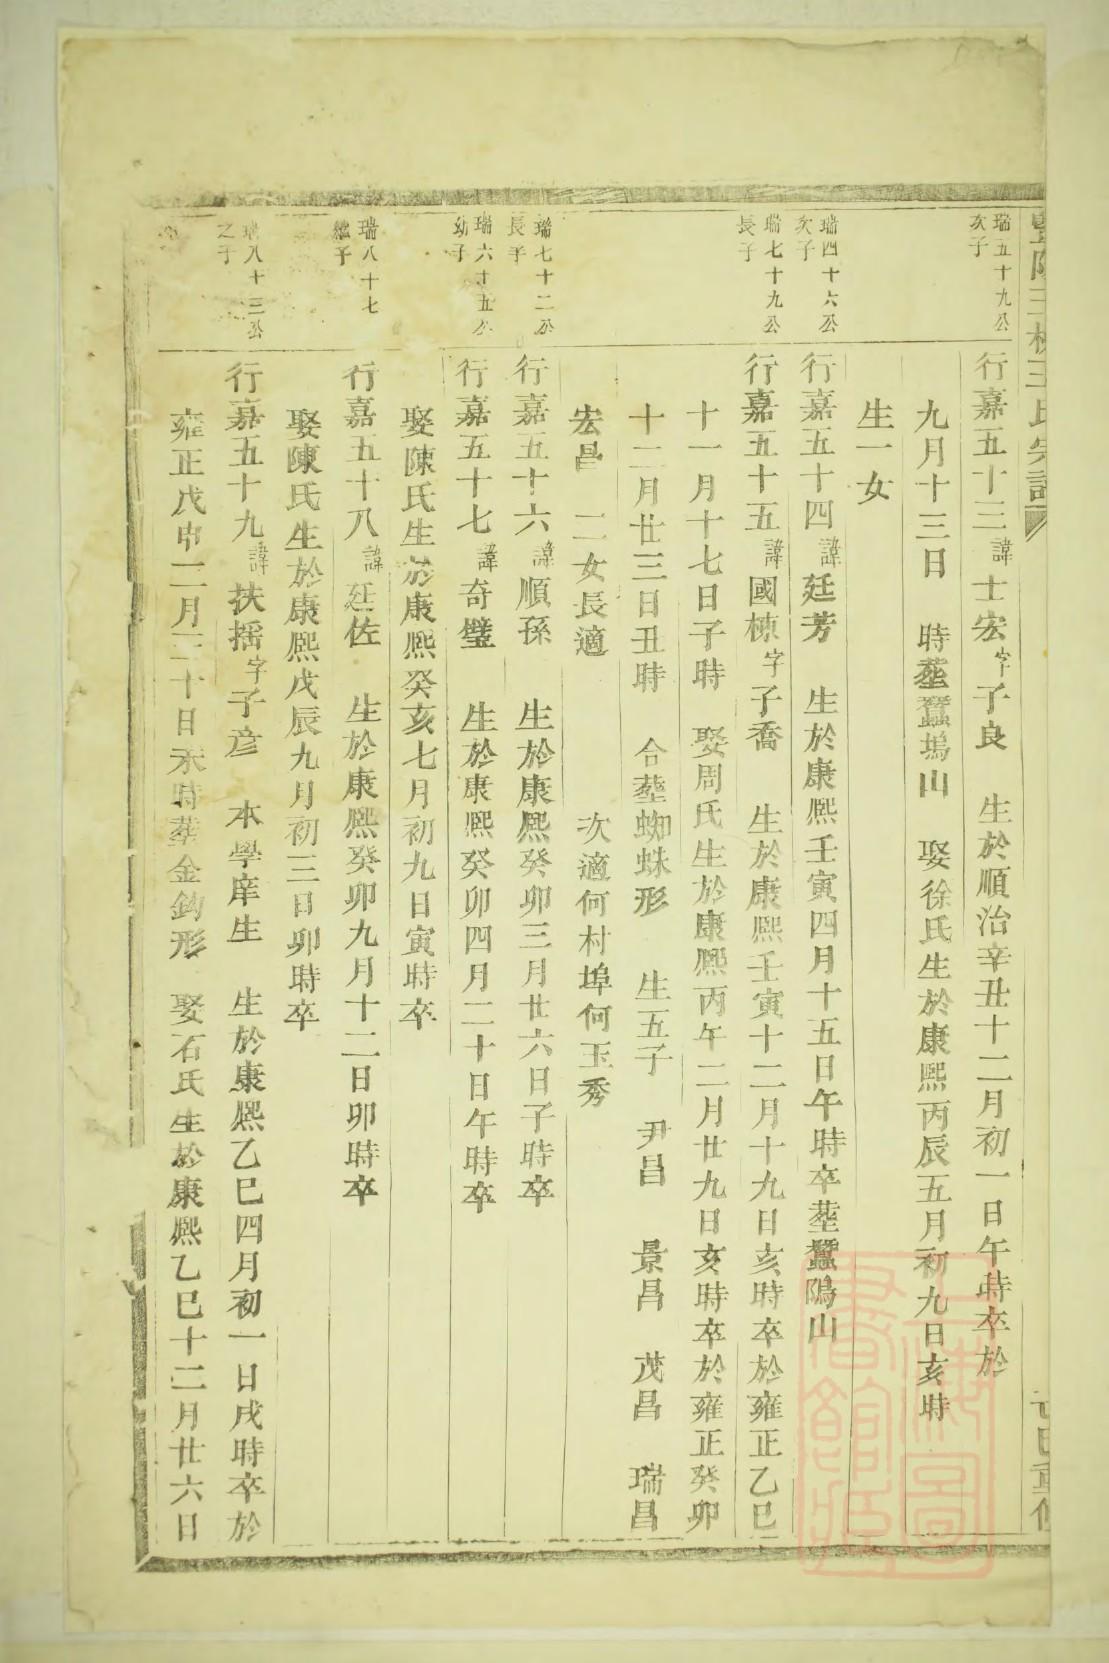 王氏宗譜
瑞五十九公
次子
行嘉五十三諱士宏字子良　生於順治辛丑十二月初一日午時卒於
九月十三日　時塟蠶塢山　娶徐氏生於康熙丙辰五月初九日亥時
生一女
瑞四十六公
次子
行嘉五十四諱廷芳　生於康熙壬寅四月十五日午時卒塟蠶隖山
瑞七十九公
長子
行嘉五十五諱國棟字子喬　生於康熙壬寅十二月十九日亥時卒於雍正乙巳
十一月十七日子時　娶周氏生於康熙丙午二月廿九日亥時卒於雍正癸卯
十二月廿三日丑時　合塟蜘蛛形　生五子　尹昌　景昌　茂昌　瑞昌
宏昌　二女長適　次適何村埠何玉秀
瑞七十二公
長子
行嘉五十六諱順孫　生於康熙癸卯三月廿六日子時卒
瑞六十五公
幼子
行嘉五十七諱奇璧　生於康熙癸卯四月二十日午時卒
娶陳氏生於康熙癸亥七月初九日寅時卒
瑞八十七
繼子
行嘉五十八諱廷佐　生於康熙癸卯九月十二日卯時卒
娶陳氏生於康熙戊辰九月初三日卯時卒
瑞八十三公
之子
行嘉五十九諱扶搖字子彦　本學庠生　生於康熙乙巳四月初一日戌時卒於
雍正戊申二月二十日未時塟金鈎形　娶石氏生於康熙乙巳十二月廿六日